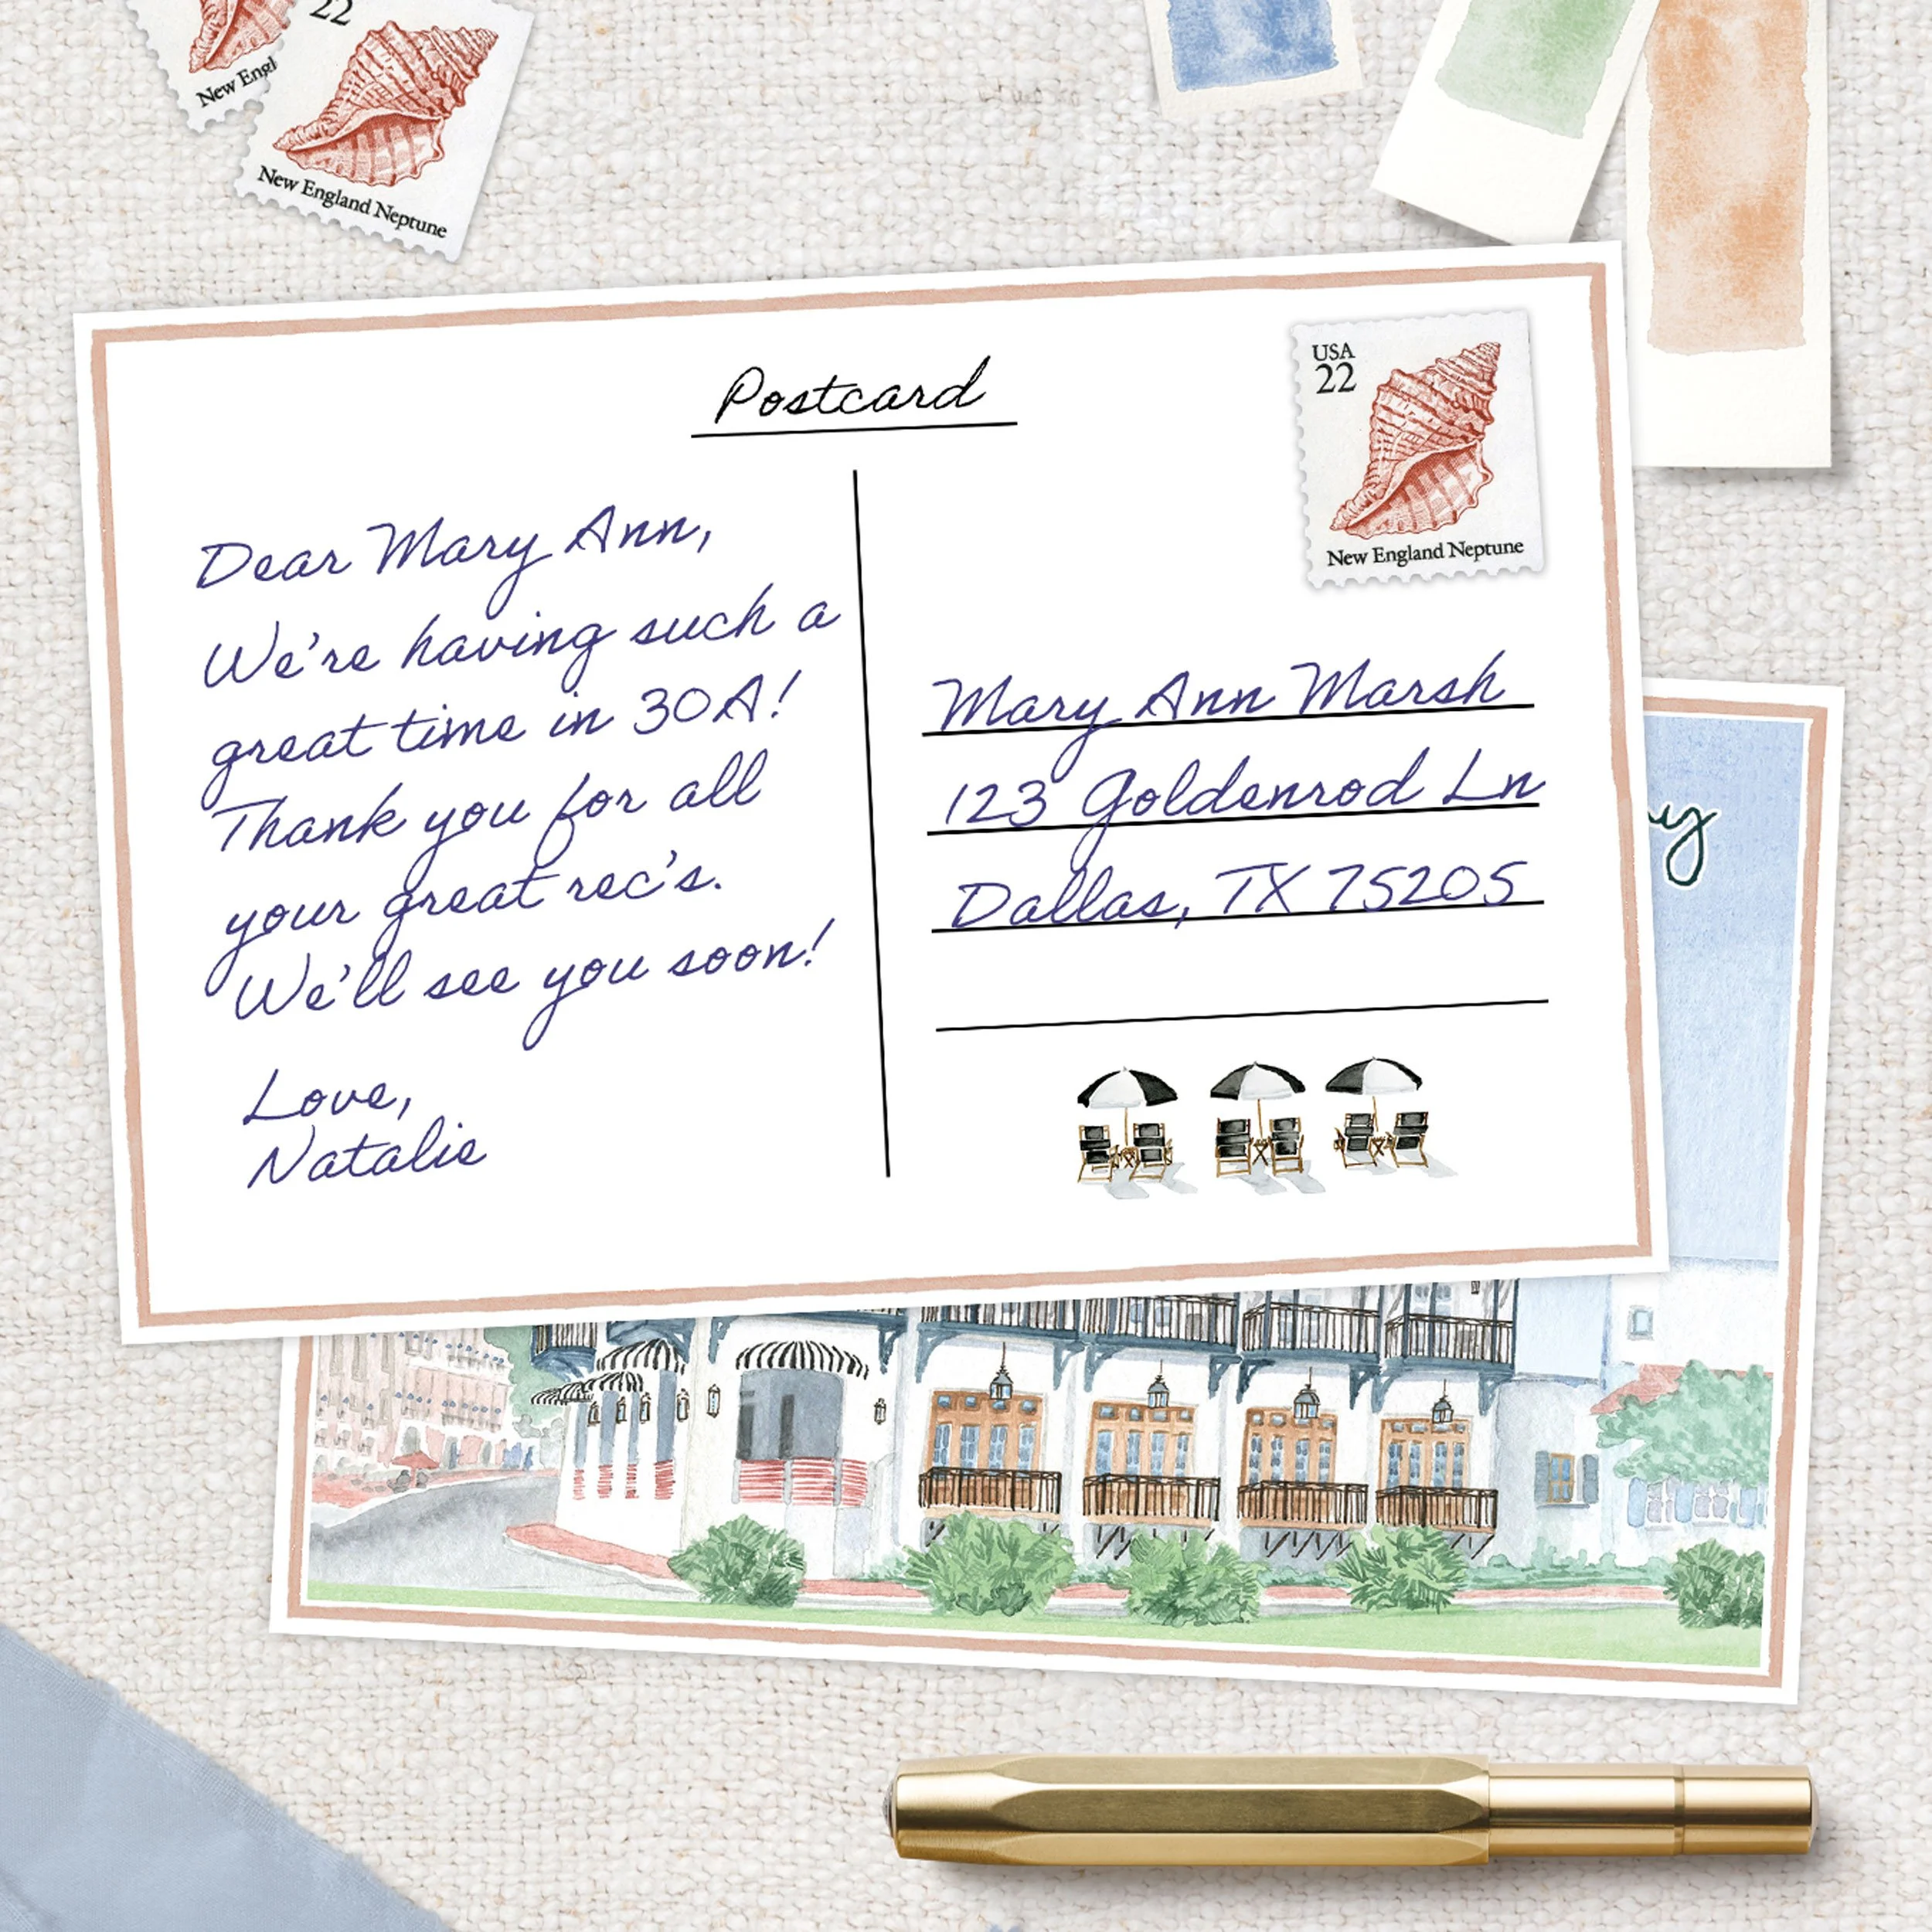 New Engl
22
New England Neptune
Postcard
USA
22
New England Neptune
Dear Mary Ann,
We're having such a
great time in 30A!
Thank you for all
your great rec's.
We'll see you soon!
Love,
Natalie
Mary Ann Marsh
123 Goldenrod Ln
Dallas, TX 75205